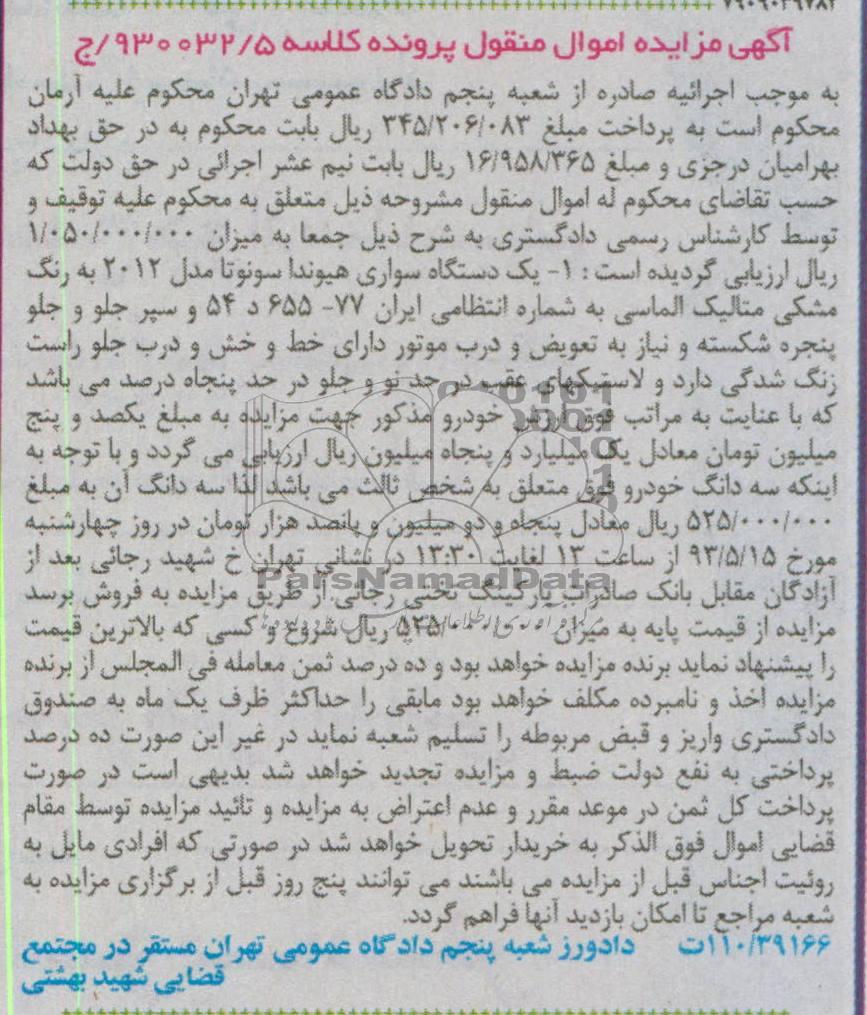 ۷۹۰۹۰۳۹۷۸۲
آگهی مزایده اموال منقول پرونده کلاسه ۹۳۰۰۳۲/۵/ج
به موجب اجرائیه صادره از شعبه پنجم دادگاه عمومی تهران محکوم علیه آرمان
محکوم است به پرداخت مبلغ ۳۴۵/۲۰۶/۰۸۳ ریال بابت محکوم به در حق بهداد
بهرامیان درجزی و مبلغ ۱۶/۹۵۸/۳۶۵ ریال بابت نیم عشر اجرائی در حق دولت که
حسب تقاضای محکوم له اموال منقول مشروحه ذیل متعلق به محکوم علیه توقیف و
توسط کارشناس رسمی دادگستری به شرح ذیل جمعا به میزان ۱/۰۵۰/۰۰۰/۰۰۰
ریال ارزیابی گردیده است : ۱- یک دستگاه سواری هیوندا سوناتا مدل ۲۰۱۲ به رنگ
مشکی متالیک الماسی به شماره انتظامی ایران ۷۷- ۶۵۵ د ۵۴ و سپر جلو و جلو
پنجره شکسته و نیاز به تعویض و درب موتور دارای خط و خش و درب جلو راست
زنگ شدگی دارد و لاستیکهای عقب در حد نو و جلو در حد پنجاه درصد می باشد
که با عنایت به مراتب فوق ارزش خودرو مذکور جهت مزایده به مبلغ یکصد و پنج
میلیون تومان معادل یک میلیارد و پنجاه میلیون ریال ارزیابی می گردد و با توجه به
اینکه سه دانگ خودرو فوق متعلق به شخص ثالث می باشد لذا سه دانگ آن به مبلغ
۵۲۵/۰۰۰/۰۰۰ ریال معادل پنجاه و دو میلیون و پانصد هزار تومان در روز چهارشنبه
مورخ ۹۳/۵/۱۵ از ساعت ۱۳ لغایت ۱۳:۳۰ در نشانی تهران خ شهید رجائی بعد از
آزادگان مقابل بانک صادرات پارکینگ تختی رجائی از طریق مزایده به فروش برسد
ParsNamadData
مزایده از قیمت پایه به میزان ۵۲۵/۰۰۰/۰۰۰ ریال شروع و کسی که بالاترین قیمت
را پیشنهاد نماید برنده مزایده خواهد بود و ده درصد ثمن معامله فی المجلس از برنده
مزایده اخذ و نامبرده مکلف خواهد بود مابقی را حداکثر ظرف یک ماه به صندوق
دادگستری واریز و قبض مربوطه را تسلیم شعبه نماید در غیر این صورت ده درصد
پرداختی به نفع دولت ضبط و مزایده تجدید خواهد شد بدیهی است در صورت
پرداخت کل ثمن در موعد مقرر و عدم اعتراض به مزایده و تائید مزایده توسط مقام
قضایی اموال فوق الذکر به خریدار تحویل خواهد شد در صورتی که افرادی مایل به
روئیت اجناس قبل از مزایده می باشند می توانند پنج روز قبل از برگزاری مزایده به
شعبه مراجع تا امکان بازدید آنها فراهم گردد.
۱۱۰/۳۹۱۶۶ت دادورز شعبه پنجم دادگاه عمومی تهران مستقر در مجتمع
قضایی شهید بهشتی